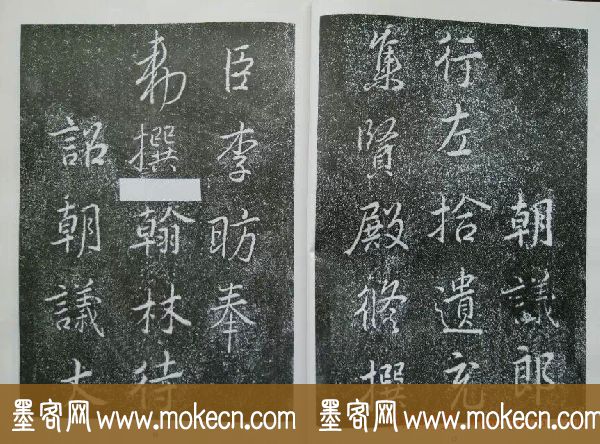 朝議郎
行左拾遺充
集賢殿修撰
臣李昉奉
勅撰翰林待
詔朝議大
墨客网 www.mokecn.com
墨客网 www.mokecn.com